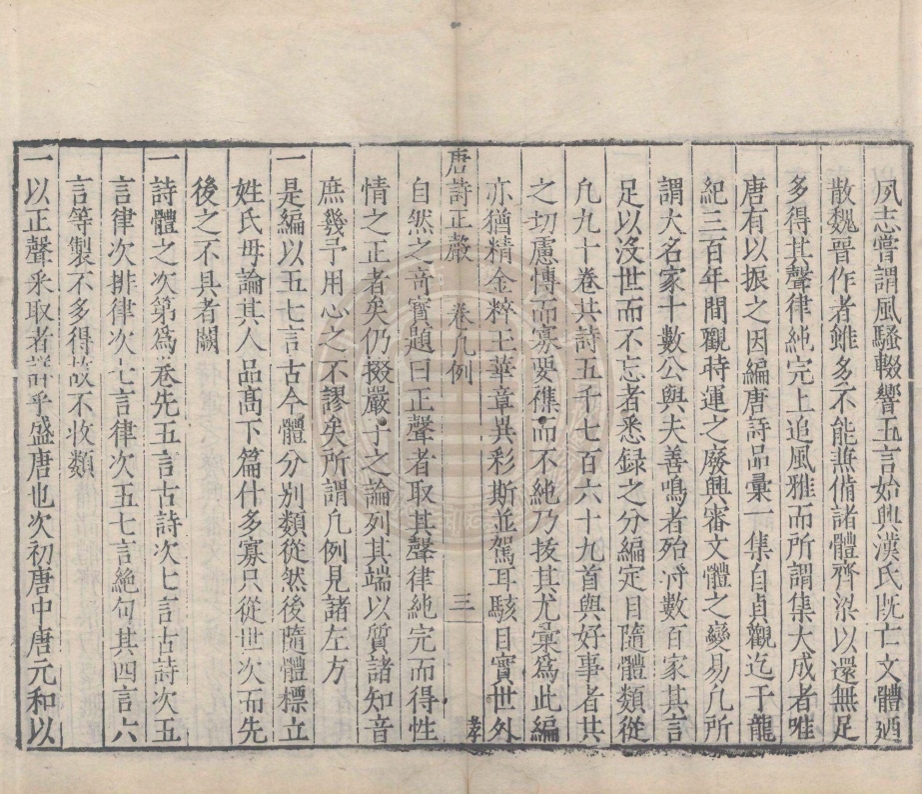 夙志嘗謂風騷輟響五言始興漢氏既亡文體廼
散魏晉作者雖多不能兼備諸體齊梁以還無足
多得其聲律純完上追風雅而所謂集大成者唯
唐有以振之因編唐詩品彚一集自貞觀迄于龍
紀三百年間觀時運之廢興審文體之變易凡所
謂大名家十數公與夫善鳴者殆將數百家其言
足以沒世而不忘者悉録之分編定目隨體類從
凡九十卷其詩五千七百六十九首與好事者共
之切慮愽而寡要雜而不純乃拔其尤彚爲此編
亦猶精金粹玉華章異彩斯並駕耳駭目實世外
唐詩正聲 卷凡例 三 孝
自然之奇寳題曰正聲者取其聲律純完而得性
情之正者矣仍掇嚴子之論列其端以質諸知音
庶幾予用心之不謬矣所謂凡例見諸左方
一是編以五七言古今體分别類從然後隨體標立
姓氏毋論其人品髙下篇什多寡只從世次而先
後之不具者闕
一詩體之次第爲卷先五言古詩次七言古詩次五
言律次排律次七言律次五七言絶句其四言六
言等製不多得故不收類
一以正聲釆取者詳乎盛唐也次初唐中唐元和以